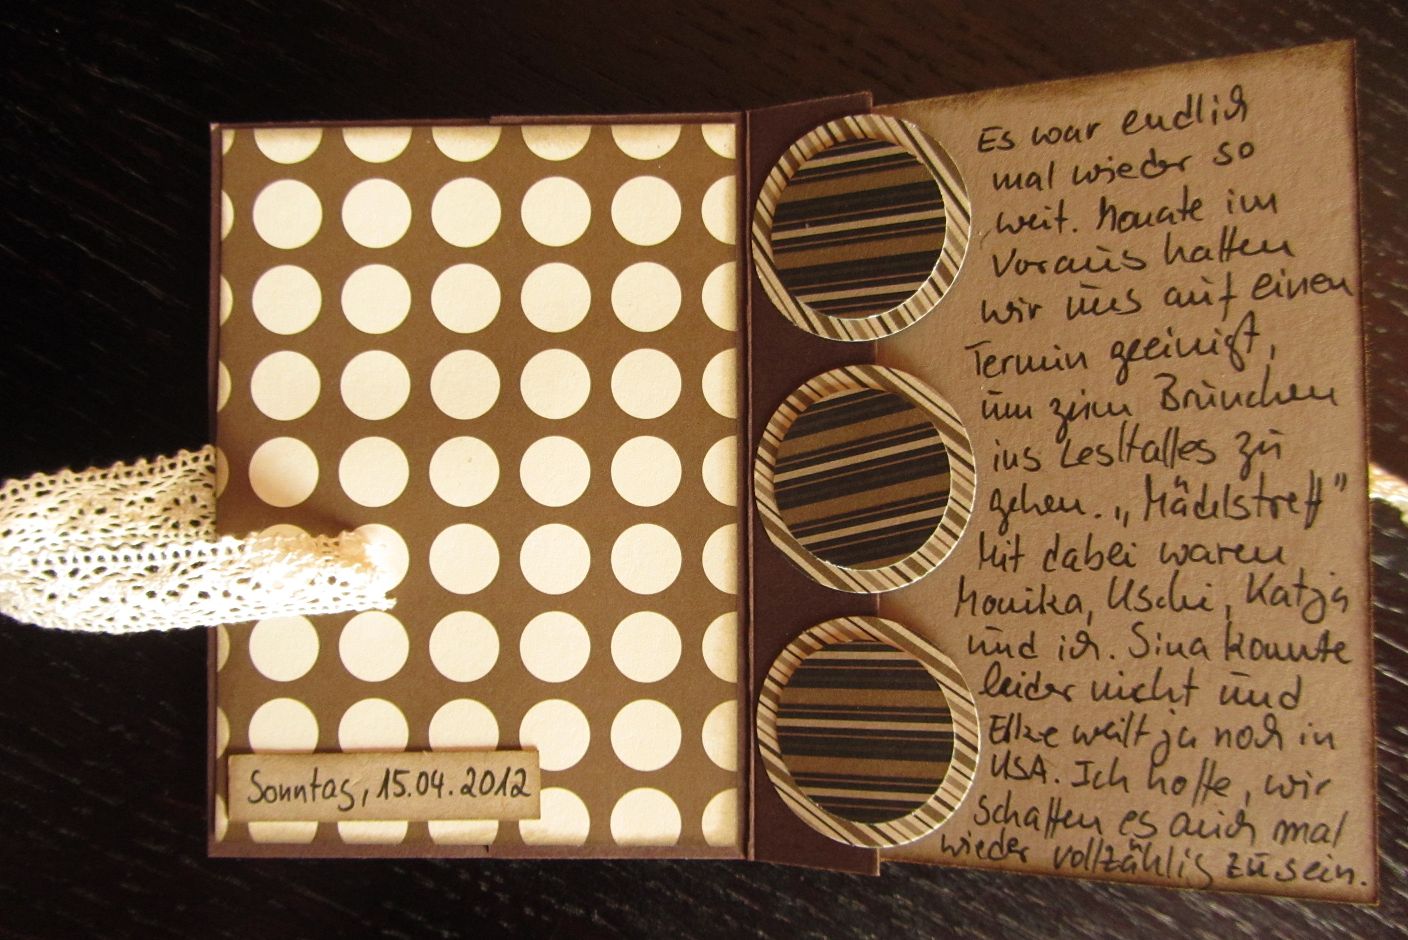 Sonntag, 15.04.2012
Es war endlich
mal wieder so
weit. Monate im
Voraus hatten
wir uns auf einen
Termin geeinigt,
um zum Brunchen
ins Lesltalles zu
gehen. „Mädelstreff"
Mit dabei waren
Monika, Uschi, Katja
und ich. Sina konnte
leider nicht und
Elke weilt ja noch in
USA. Ich hoffe, wir
schaffen es auch mal
wieder vollzählig zu sein.